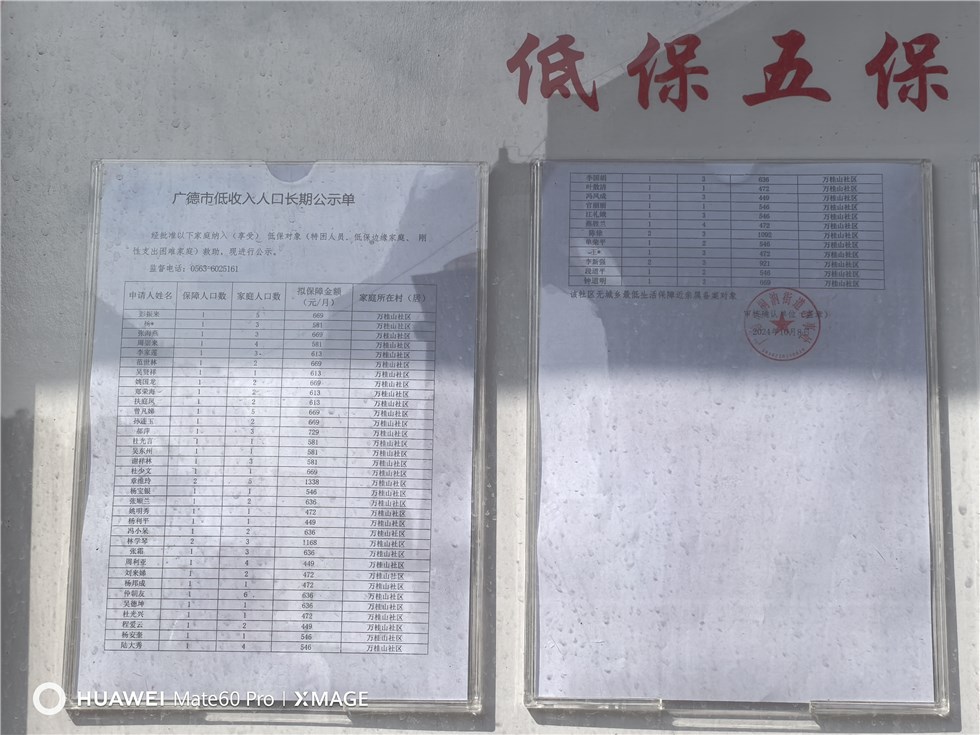 低保五保
广德市低收入人口长期公示单
经批准以下家庭纳入（享受）低保对象（特困人员、低保边缘家庭、刚
性支出困难家庭）救助，现进行公示。
监督电话：0563-6025161
申请人姓名 保障人口数 家庭人口数 拟保障金额（元/月） 家庭所在村（居）
1 5 669 万桂山社区
1 581 万桂山社区
1 669 万桂山社区
1 4 581 万桂山社区
1 3 613 万桂山社区
1 2 669 万桂山社区
吴贤祥 1 1 613 万桂山社区
姚国龙 1 2 669 万桂山社区
郑荣海 1 2 613 万桂山社区
1 2 613 万桂山社区
曾凡娣 1 669 万桂山社区
孙连玉 1 2 669 万桂山社区
1 3 729 万桂山社区
杜光言 1 1 581 万桂山社区
吴东州 1 1 581 万桂山社区
1 3 581 万桂山社区
杜少文 1 1 669 万桂山社区
章维玲 2 5 1338 万桂山社区
杨宝银 1 1 546 万桂山社区
张银兰 1 2 636 万桂山社区
姚明秀 1 1 472 万桂山社区
杨利平 1 1 449 万桂山社区
冯小呆 1 2 636 万桂山社区
林学琴 2 3 1168 万桂山社区
张霜 1 3 636 万桂山社区
周利亚 1 4 449 万桂山社区
刘来娣 1 2 472 万桂山社区
杨邦成 1 1 472 万桂山社区
仲朝友 1 6 636 万桂山社区
吴德坤 1 1 636 万桂山社区
杜光兴 1 1 472 万桂山社区
程爱云 1 2 449 万桂山社区
杨安奎 1 1 546 万桂山社区
陆大秀 1 4 546 万桂山社区
1 3 636 万桂山社区
1 1 472 万桂山社区
1 3 449 万桂山社区
1 1 546 万桂山社区
江礼晓 1 1 546 万桂山社区
1 4 546 万桂山社区
2 3 1092 万桂山社区
1 2 546 万桂山社区
1 3 472 万桂山社区
李振强 1 1 921 万桂山社区
段进平 1 2 万桂山社区
钟道明 1 2 万桂山社区
该社区无城乡最低生活保障近亲属备案对象
审核确认单位（盖章）
2024年10月8日
HUAWEI Mate60 Pro | XMAGE